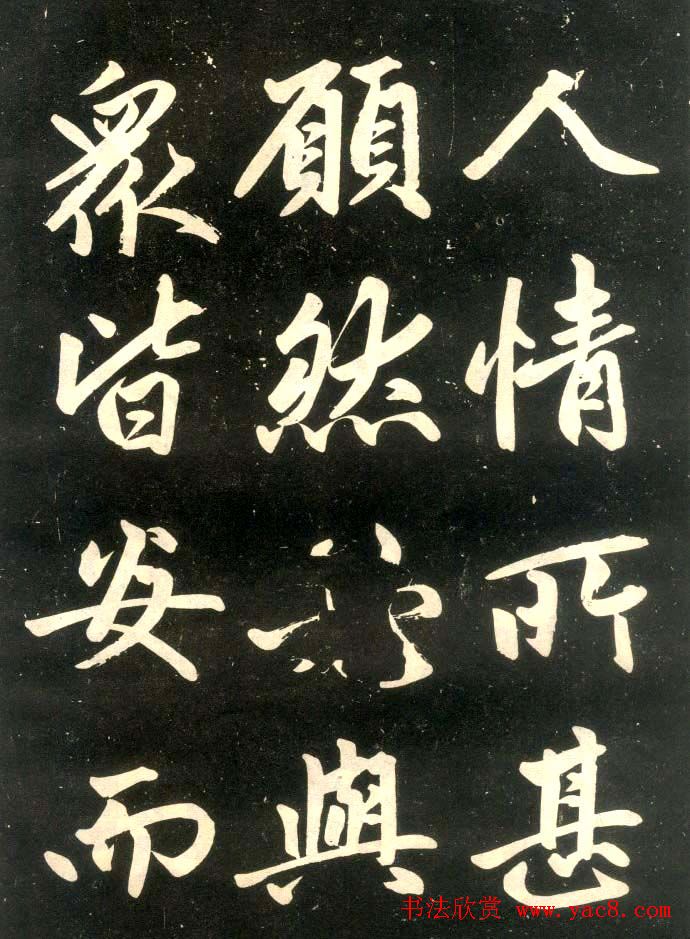 人情所甚
願然與
眾皆安而
书法欣赏 www.yac8.com